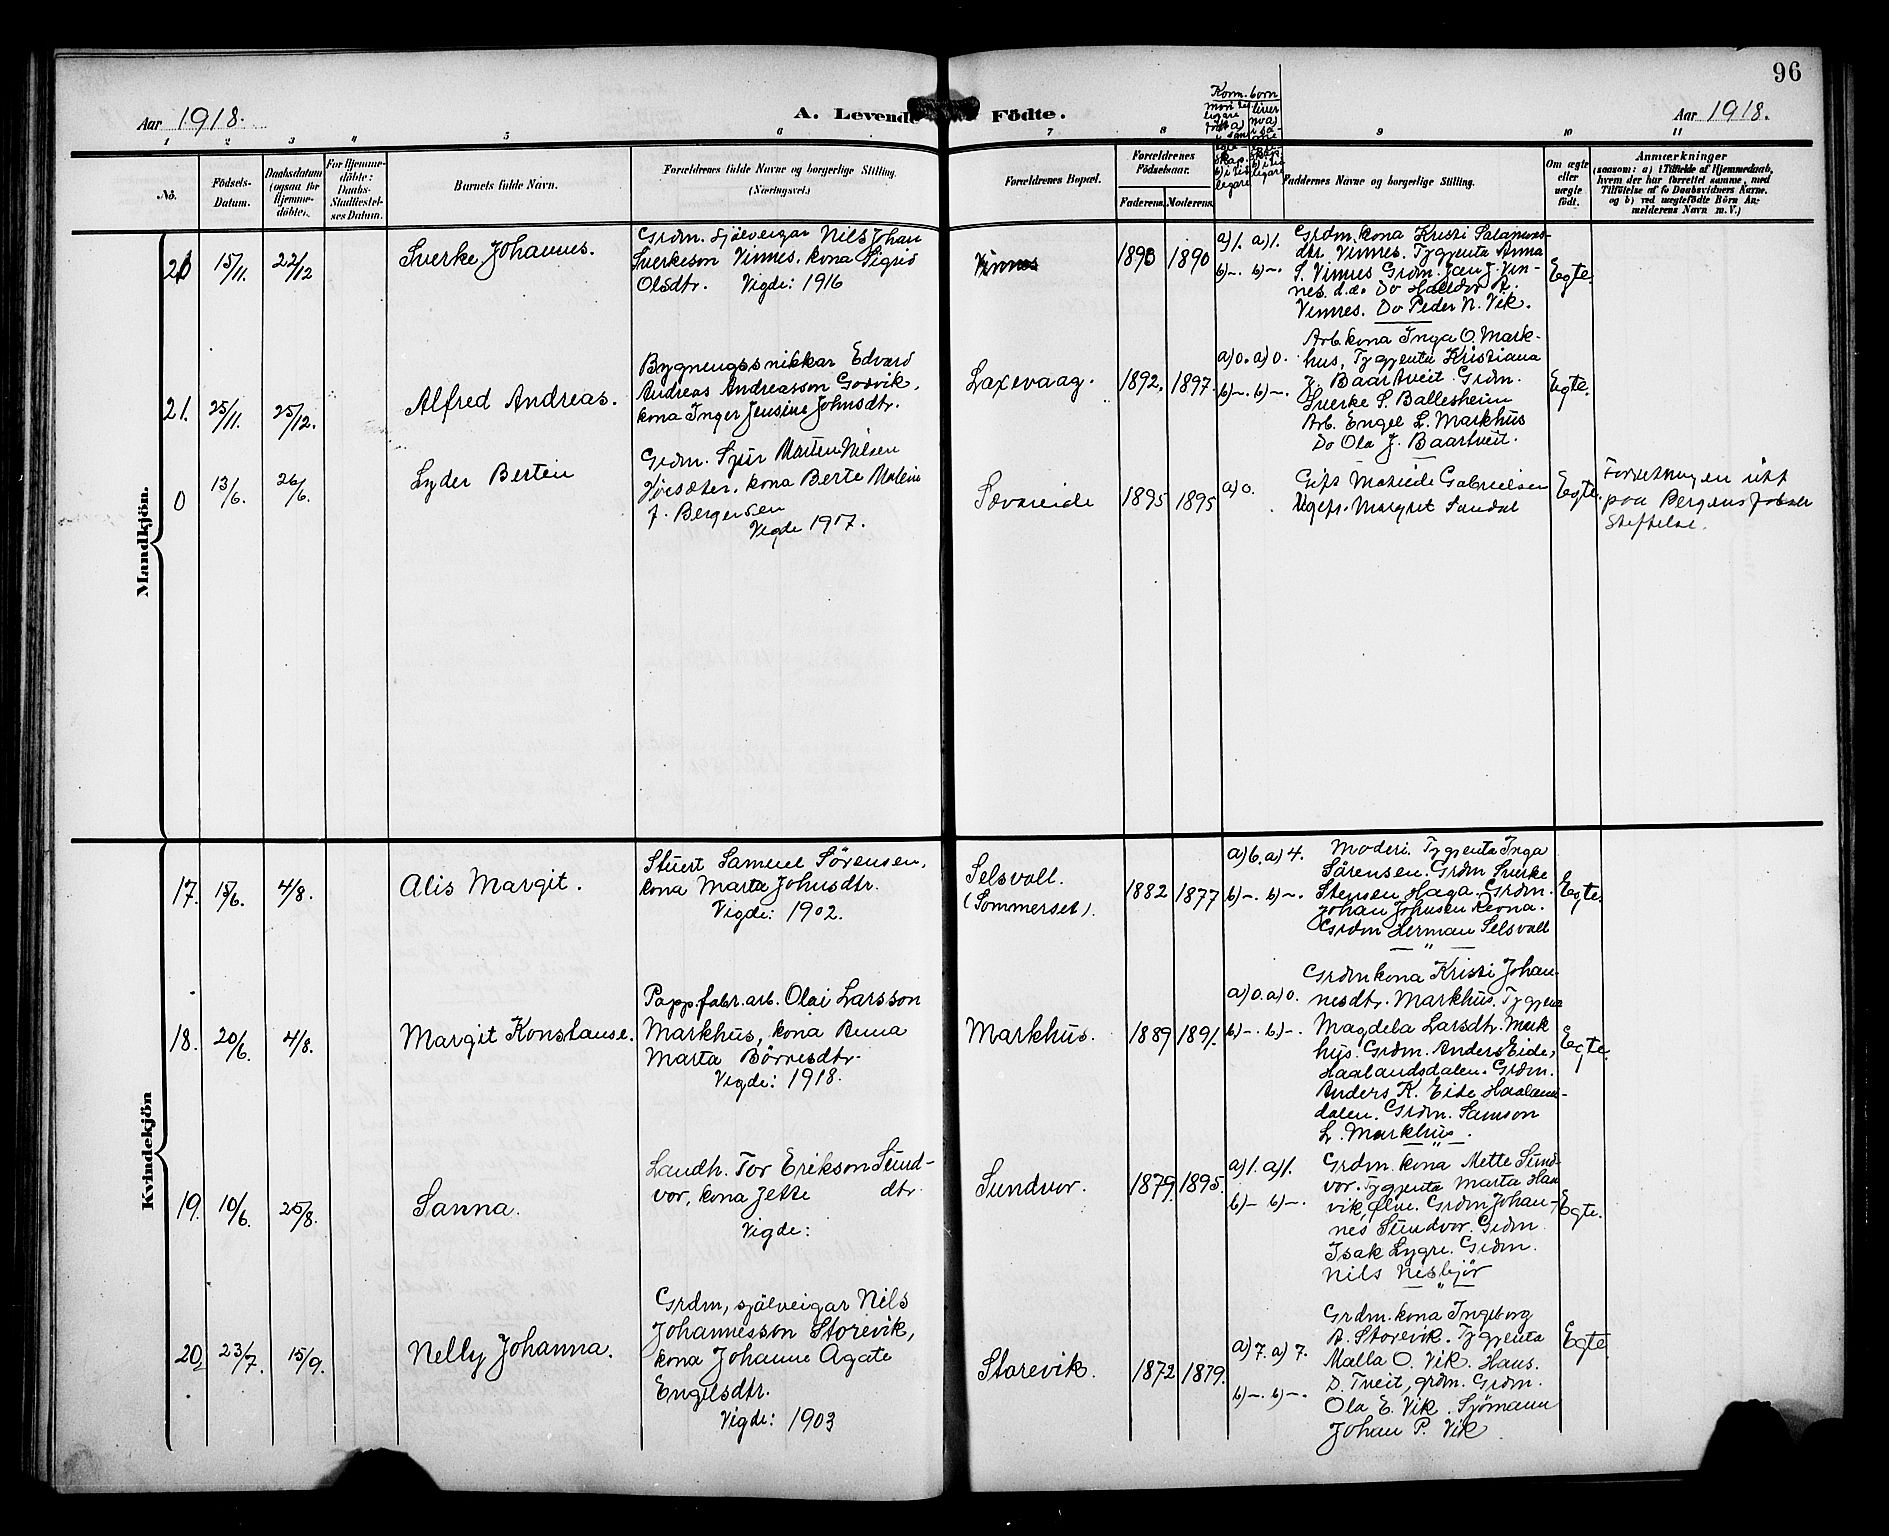 96
Aar 1918.
A. Levende Födte.
Aar 1918.
1 2 3 4 5 6 7 8 9 10 11
No.
Födsels-
Datum.
Daabsdatum
(ogsaa for
Hjemme-
döbte).
For Hjemme-
döbte:
Daabs-
Stadfæstel-
ses Datum.
Barnets fulde Navn.
Forældrenes fulde Navne og borgerlige Stilling
(Næringsvei.)
Forældrenes Bopæl.
Forældrenes
Födselsaar.
Faderens. Moderens.
Faddernes Navne og borgerlige Stilling.
Om ægte
eller
uægte
födt.
Anmærkninger
(saasom: a) i Tilfælde af Hjemmedaab,
hvem der har forrettet samme, med
Tilföielse af to Daabsvidners Navne,
og b) ved uægtefödte Börn An-
melderens Navn m. V.)
Mandkjön.
20 15/11. 22/12
Sverke Johannes.
Grdm. sjölveigar Nils Johan
Sverkeson Vinnes, kona Sigrid
Olsdtr. Vigde: 1916
Vinnes
1890 1890
a) 1. a) 1.
b) –. b) –.
Grdm. kona Kristi Salamons-
dtr Vinnes. Tygjenta Anna
S. Vinnes Grdm. Jan J. Vin-
nes. d.æ. Do Halldor A.
Vinnes. Do Peder N. Vik.
Egte.
21. 25/11. 25/12.
Alfred Andreas.
Bygnengssnikkar Edvard
Andreas Andreasson Godvik,
kona Inger Jensine Johnsdtr.
Laxevaag.
1892. 1897.
a) 0. a) 0.
b) –. b) –.
Arb. kona Inga O. Mark-
hus, Tygjenta Kristiana
J. Baartveit. Grdm.
Sverke S. Ballesheim
Arb. Engel L. Markhus
Do Ola J. Baartveit.
Egte.
0 13/6. 26/6.
Lyder Bertin
Grdm. Sjur Marten Nilsen
Höisæter, kona Berte Malene
J. Bergersen
Vigde 1917.
Sævareide
1895 1895
a) 0.
Gift Matilde Gabrielsen
Ugift. Margret Sandal
Egte.
Forretningen utf
paa Bergens
Steftelse.
Kvindekjön
17. 15/6. 4/8.
Alis Margit.
Stuert Samuel Sörensen,
kona Marta Johnsdtr.
Vigde: 1902.
Selsvoll.
(Sommerset).
1882 1877
a) 6. a) 4.
b) –. b) –.
Moderi. Tygjenta Inga
Sörensen. Grdm Sverke
Stensen Haga. Grdm.
Johan Johnsen Revna.
Grdm Herman Selsvoll
Egte.
18. 20/6. 4/8.
Margit Konstanse.
Papp.fabr.arb. Olai Larsson
Markhus, kona Anna
Marta Börresdtr.
Vigde: 1918.
Markhus.
1889 1891.
a) 0. a) 0.
b) –. b) –.
Grdm kona Kristi Johan-
nesdtr. Markhus. Tygjenta
Magdela Larsdtr. Mark
hus. Grdm. Anders Eide,
Haalandsdalen. Grdm.
Anders K. Eide Haalann-
dalen. Grdm. Samson
L. Markhus.
Egte.
19. 10/6. 25/8.
Sanna.
Landh. Tor Erikson Sund-
vor, kona Jette dtr.
Vigde:
Sundvor.
1879. 1895.
a) 1. a) 1.
b) – b) –.
Grdm. kona Mette Sund-
vor. Tygjenta Marta Han
vik, Ølve. Grdm Johan-
nes Sundvor. Grdm.
Isak Lygre. Grdm.
Nils Nesbjör
Egte.
20. 23/7. 15/9.
Nelly Johanna.
Grdm, sjölveigar Nils
Johannesson Storevik,
kona Johanne Agate
Engelsdtr.
Vigde: 1903
Storevik.
1872 1879.
a) 7. a) 7.
b) –. b) –.
Grdm. kona Ingeborg
A. Storevik. Tygjenta
Malla O. Vik. Hans.
D. Tveit, grdm. Grdm.
Ola E. Vik. Sjömann
Johan P. Vik.
Egte.